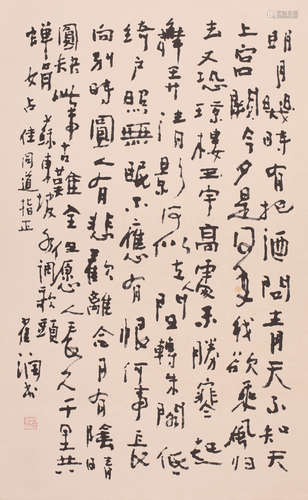 明月幾時有把酒問青天不知天
上宫闕今夕是何年我欲乘風归
去又恐琼楼玉宇高處不勝寒起
舞弄清影何似在人间转朱阁低
绮户照無眠不應有恨何事長
向别時圓人有悲歡離合月有陰晴
圓缺此事古難全但愿人長久千里共
嬋娟 蘇東坡水调歌頭 崔润书
佳同道指正